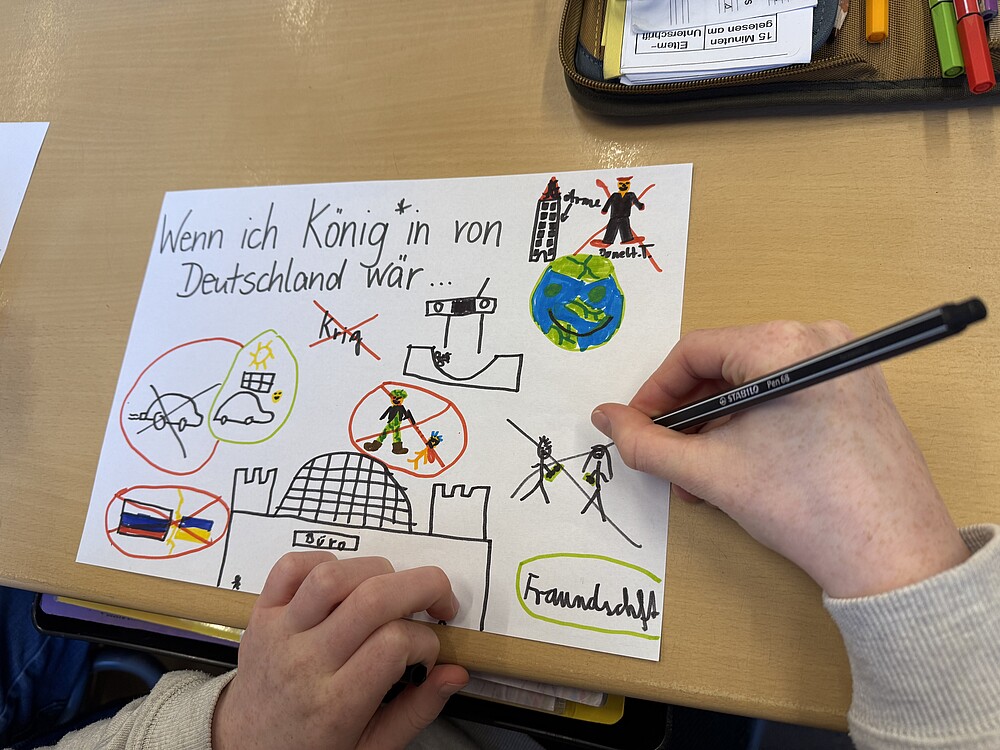 15 Minuten gelesen am
Eltern-Unterschrift
Wenn ich König*in von
Deutschland wär...
Arme
Donelt.T.
Krig
Büro
Fraundschft
STABILO Pen 68